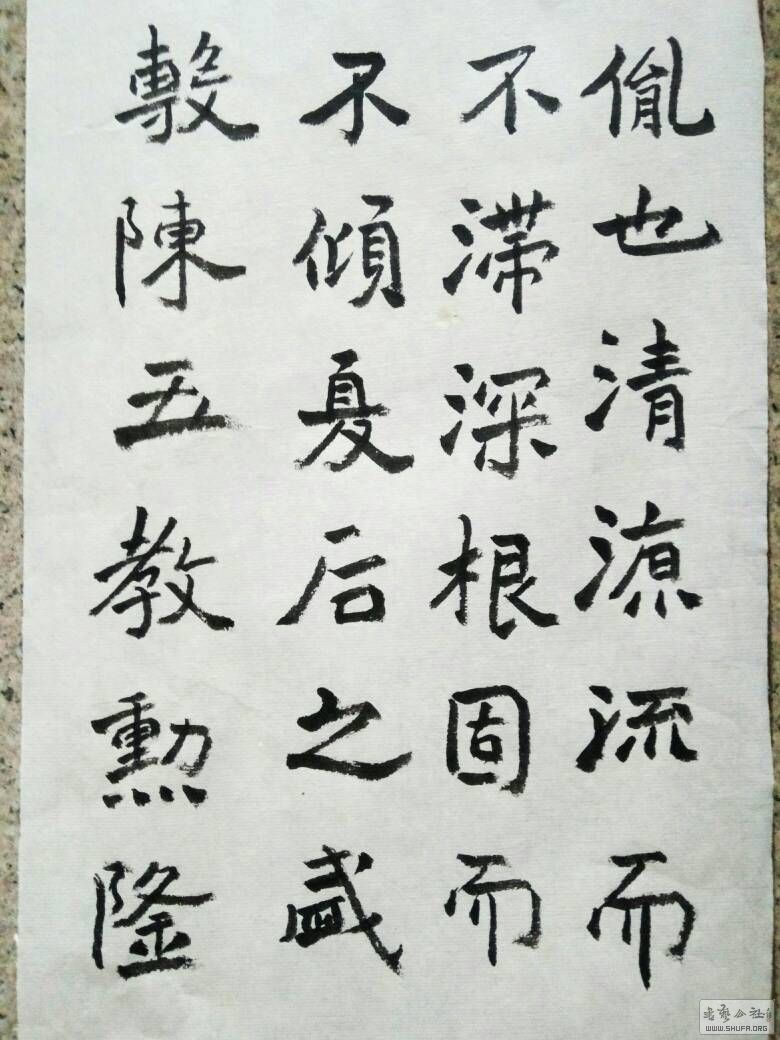 胤也清源流而
不滞深根固而
不傾夏后之盛
敷陳五教勲隆
书艺公社
WWW.SHUFA.ORG